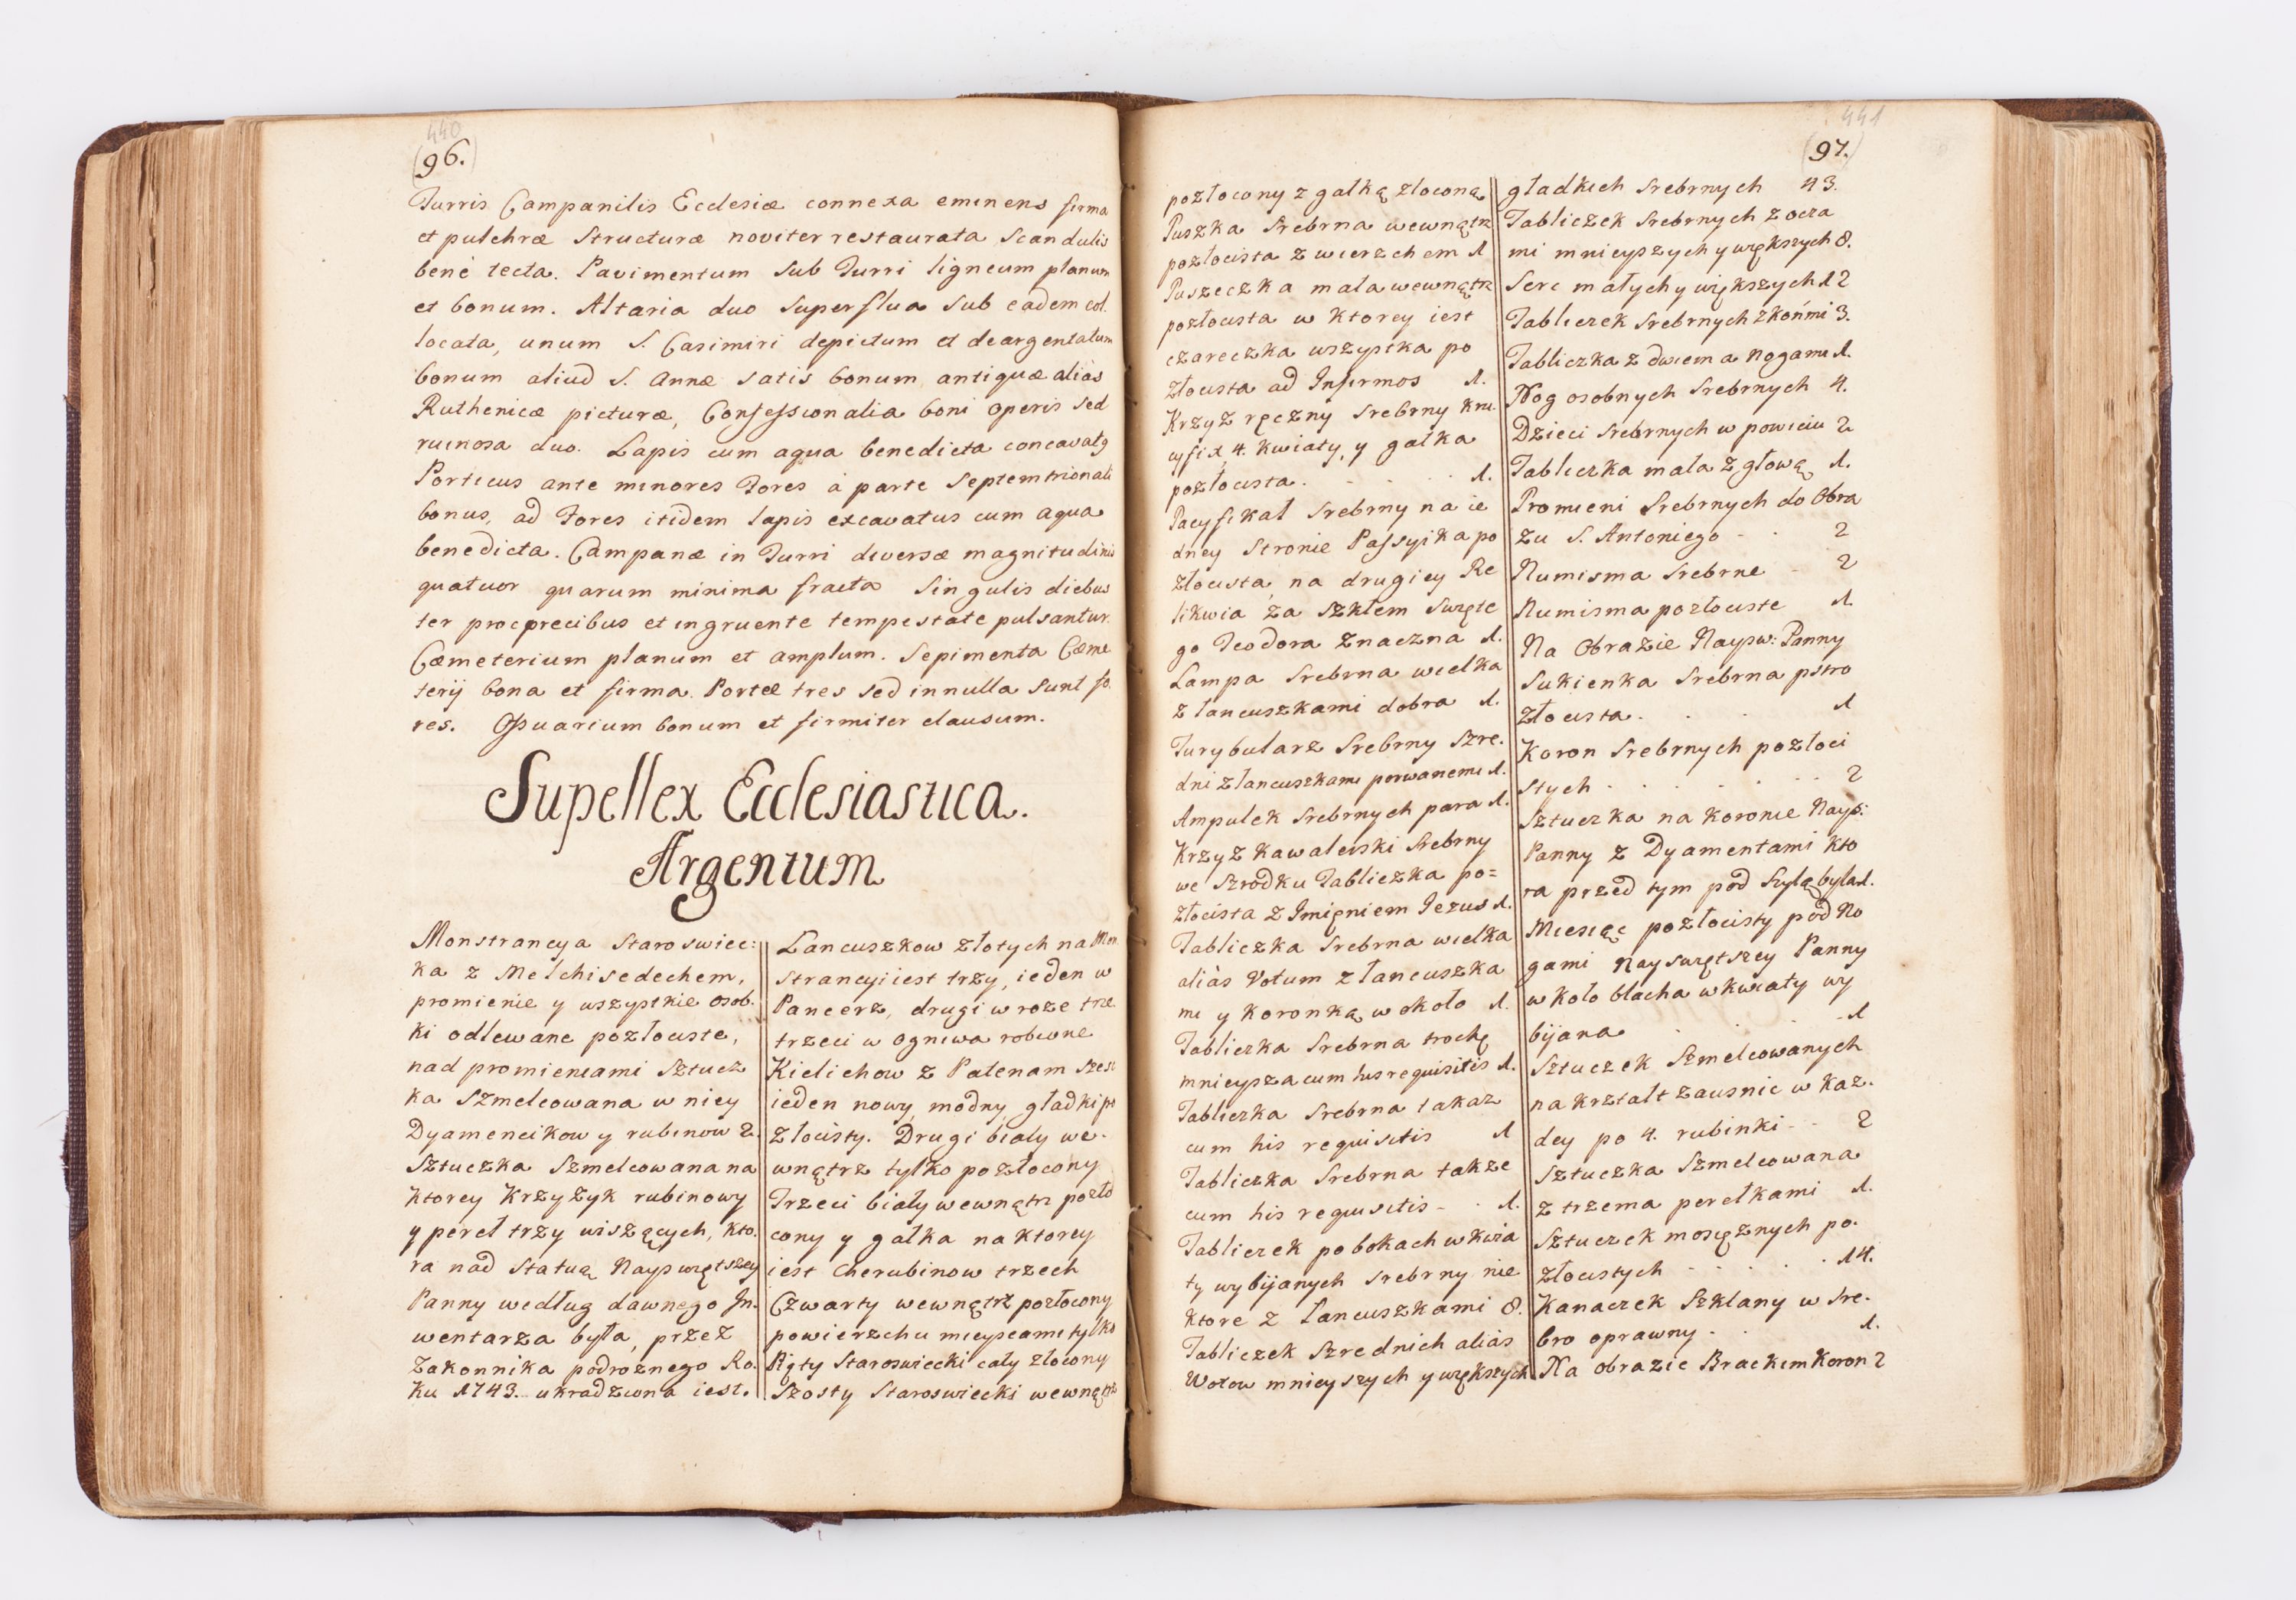 440
(96.)
Turris Campanilis Ecclesiæ connexa eminens firma
et pulchræ Structuræ noviter restaurata Scandulis
benè tecta. Pavimentum Sub Turri ligneum planum
et bonum. Altaria duo Superflua Sub eadem col.
locata, unum S. Casimiri depictum et deargentatum
bonum aliud S. Annæ Satis bonum antiquæ alias
Ruthenicæ picturæ, Confessionalia boni operis sed
ruinosa duo. Lapis cum aqua benedicta concavatg
Porticus ante minores Fores à parte Septemtrionali
bonus, ad Fores itidem lapis excavatus cum aqua
benedicta. Campanæ in Turri diversæ magnitudinis
quatuor quarum minima fracta Singulis diebus
ter pro precibus et ingruente tempestate pulsantur.
Cæmeterium planum et amplum. Sepimenta Cæme
terij bona et firma. Portæ tres sed in nulla Sunt fo.
res. Ossuarium bonum et firmiter clausum.
Supellex Ecclesiastica.
Argentum
Monstrancya Staroswiec:
ka z Melchisedechem,
promienie y wszystkie osob.
ki odlewane pozłociste,
nad promieniami Sztucz
ka Szmelcowana w niey
Dyamencikow y rubinow 2.
Sztuczka Szmelcowana na
Ktorey Krzyżyk rubinowy
y pereł trzy wiszących, kto.
ra nad Statuą Nayswiętszey
Panny według dawnego In.
wentarza była, przez
Zakonnika podrożnego Ro.
ku 1743. ukradziona iest.
Lancuszkow złotych na Mon
strancyi iest trzy, ieden w
Pancerz, drugi w roze trze
trzeci w ogniwa robione
Kielichow z Patenam szesc
ieden nowy, modny, gładki po
złocisty. Drugi biały we.
wnątrz tylko pozłocony
Trzeci biały wewnątrz pozło
cony y gałka na ktorey
iest Cherubinow trzech
Czwarty wewnątrz pozłocony
powierzchu mieyscami tylko
Piąty Staroswiecki cały złocony
Szosty Staroswiecki wewnątrz
441
(97.)
pozłocony z gałką złoconą
Puszka Srebrna wewnątrz
pozłocista z wierzchem 1
Puszeczka mała wewnątrz
pozłocista w Ktorey iest
czareczka wszystka po
złocista ad Infirmos 1.
Krzyż ręczny Srebrny Kru.
cyfix 4. kwiaty, y gałka
pozłocista. 1.
Pacyfikał Srebrny na ie
dney Stronie Passyika po
złocista, na drugiey Re
likwia za szkłem Swięte
go Teodora znaczna 1.
Lampa Srebrna wielka
z łancuszkami dobra 1.
Turybularz Srebrny Szre.
dni z łancuszkami porwanemi 1.
Ampułek Srebrnych para 1.
Krzyż Kawalerski Srebrny
we Szrodku Tabliczka po=
złocista z Imięniem Jezus 1.
Tabliczka Srebrna wielka
aliàs Votum z łancuszka
mi y Koronką w około 1.
Tabliczka Srebrna trochę
mnieysza cum his requisitis 1.
Tabliczka Srebrna takaz
cum his requisitis 1
Tabliczka Srebrna także
cum his requisitis 1.
Tabliczek po bokach w kwia
ty wybijanych Srebrny nie
Ktore z Lancuszkami 8.
Tabliczek Szrednich aliàs
Wotow mnieyszych y większych
gładkich Srebrnych 43.
Tabliczek Srebrnych z ocza
mi mnieyszych y większych 8.
Serc małych y większych 12
Tabliczek Srebrnych z końmi 3.
Tabliczka z dwiema nogami 1.
Nog osobnych Srebrnych 4.
Dzieci Srebrnych w powiciu 2
Tabliczka mała z głową 1.
Promieni Srebrnych do Obra
zu S. Antoniego 2
Numisma Srebrne 2
Numisma pozłociste 1.
Na Obrazie Nayśw: Panny
Sukienka Srebrna pstro
złocista. 1
Koron Srebrnych pozłoci
stych 2
Sztuczka na Koronie Nayś:
Panny z Dyamentami kto
ra przed tym pod Szyią była 1.
Miesiąc pozłocisty pod No
gami Nayswiętszey Panny
w koło blacha w kwiaty wy
bijana 1
Sztuczek Szmelcowanych
na krztałt zausnic w kaz.
dey po 4. rubinki 2
Sztuczka Szmelcowana
z trzema perełkami 1.
Sztuczek mosiężnych po.
złocistych 14.
Kanaczek Szklany w Sre.
bro oprawny. 1.
Na obrazie Brackim Koron 2